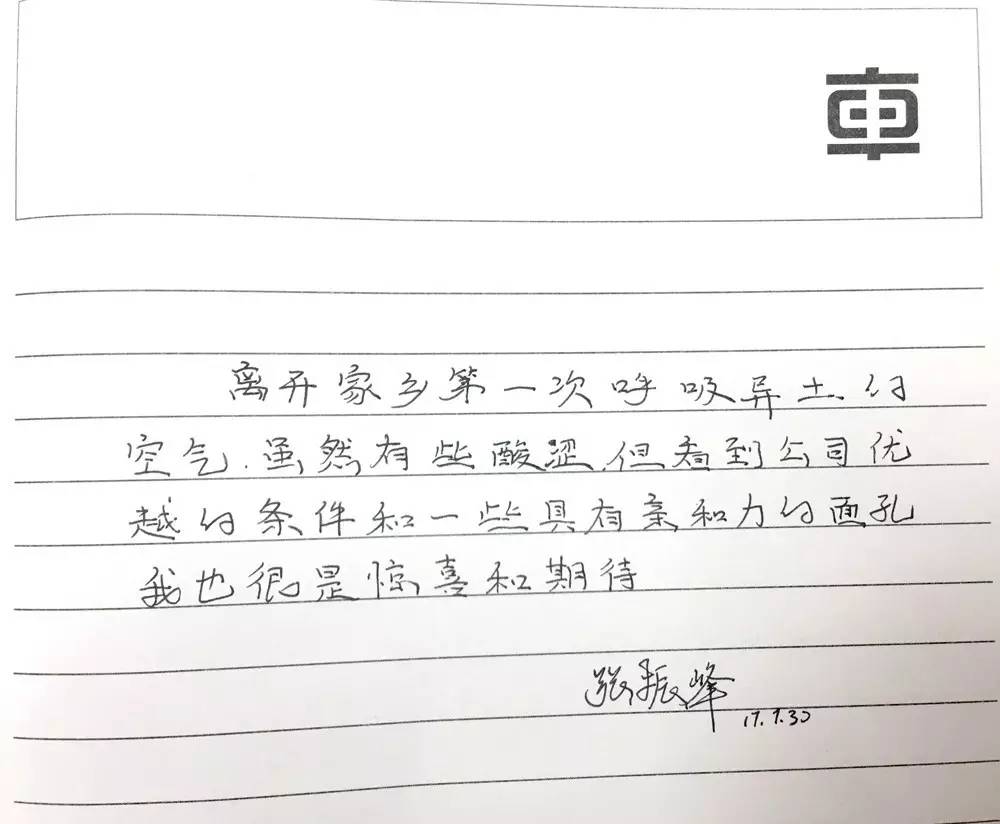 車
离开家乡第一次呼吸异土的
空气.虽然有些酸涩,但看到公司优
越的条件和一些具有亲和力的面孔
我也很是惊喜和期待
张振峰
17.7.30